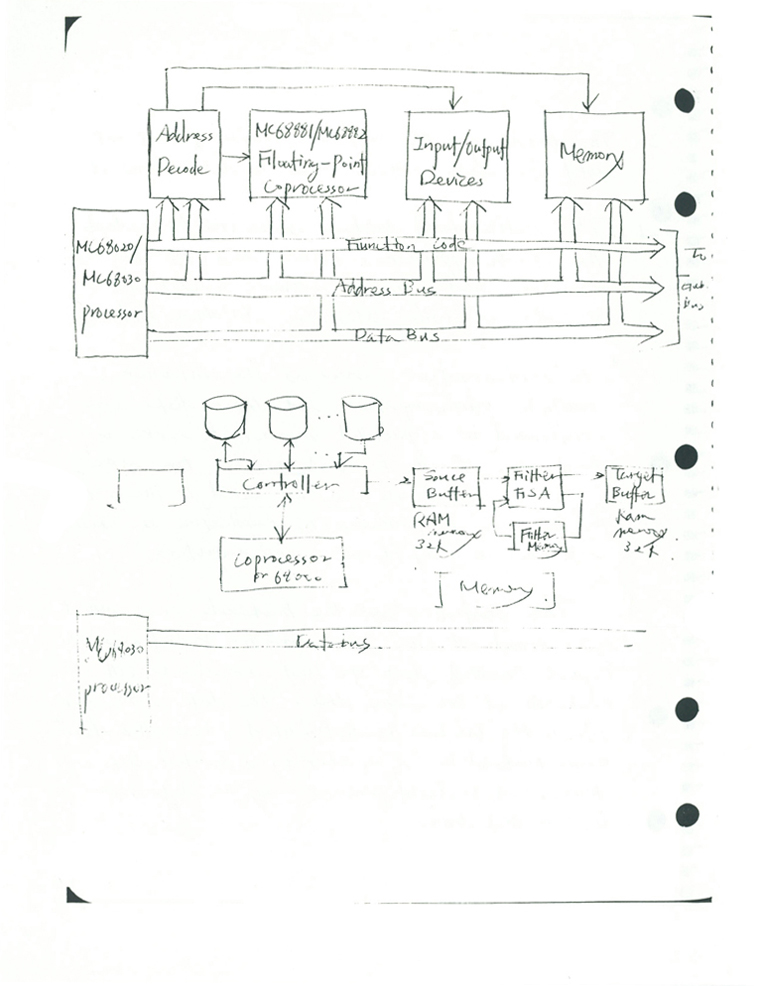 Address
Decode
MC68881/MC68882
Floating-point
Coprocessor
Input/Output
Devices
Memory
MC68020/
MC68030
processor
Function Code
Address Bus
Data Bus
Controller
Souce
Buffer
RAM
memory
32k
Filter
FSA
Filter
Memory
Target
Buffer
Ram
memory
32k
Coprocessor
or
Memory
Databus
processor